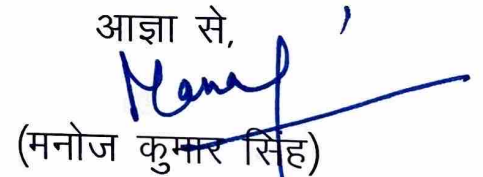 आज्ञा से,
Manoj
(मनोज कुमार सिंह)